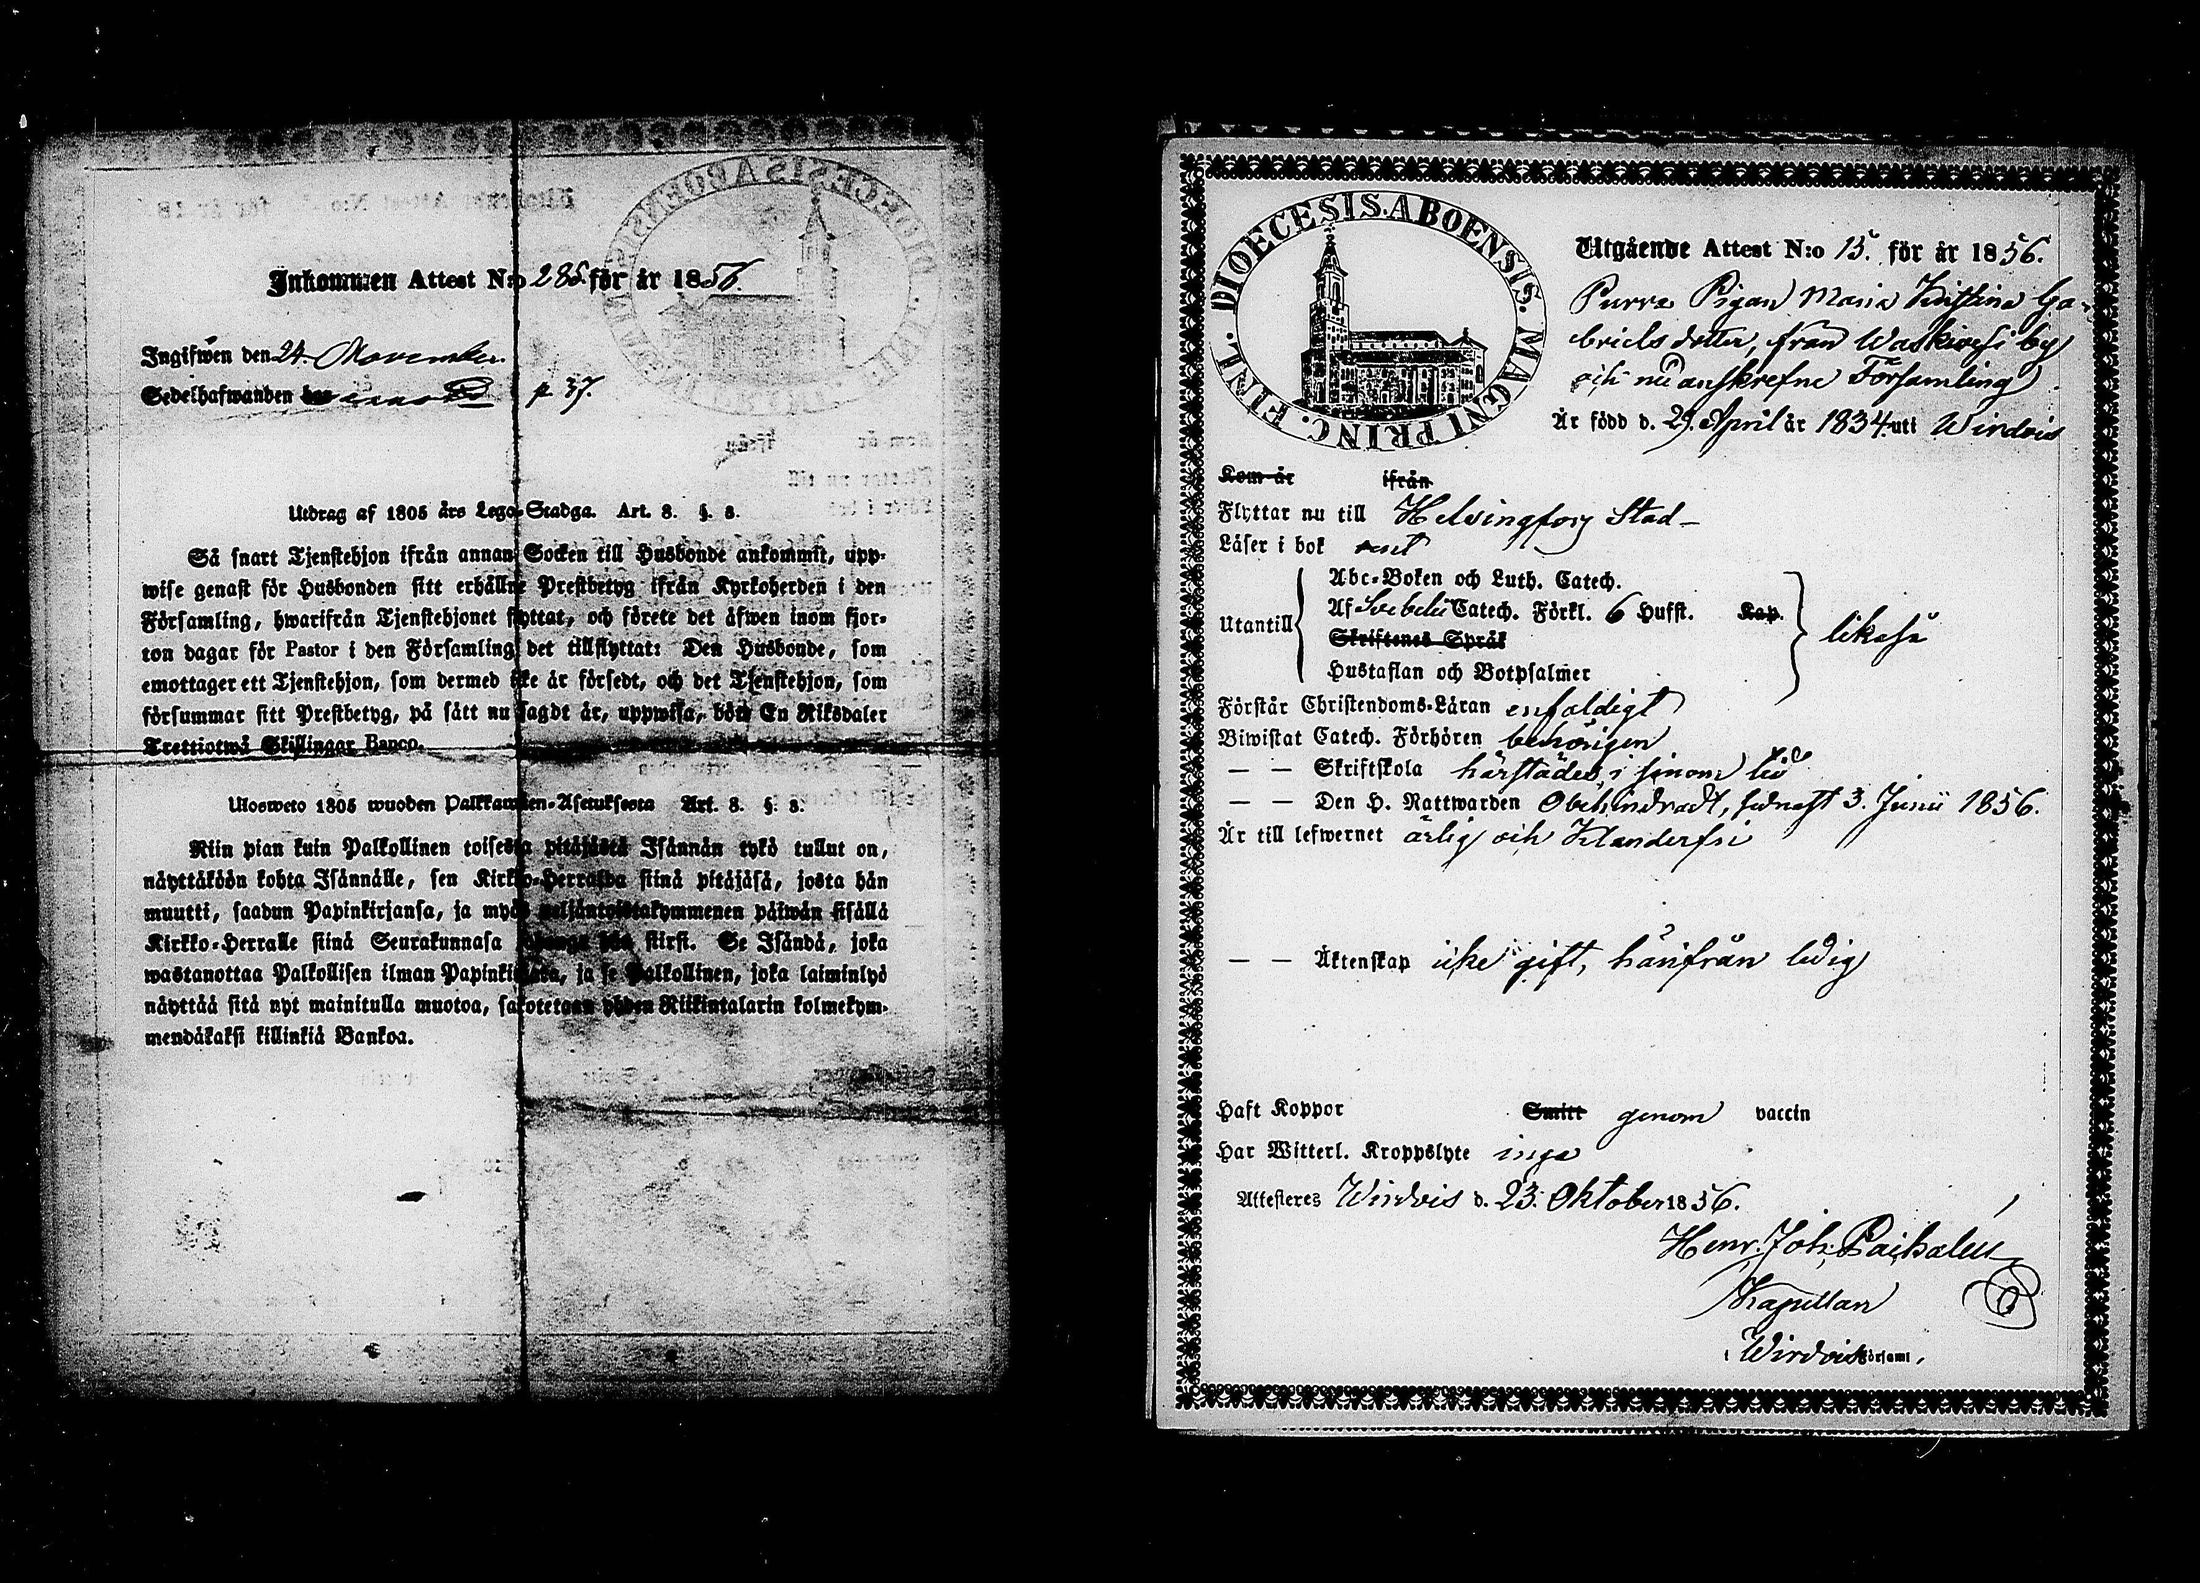 Inkommen Attest N:o 285. för år 1856.
Ingifwen den 24. November.
Sedelhafwanden p 37.
Utdrag af 1805 års Lego-Stadga. Art. 8. §. 8.
Så snart Tjenstehjon ifrån annan Socken till Husbonde ankommit, upp-
wise genast för Husbonden sitt erhållne Prestbetyg ifrån Kyrkoherden i den
Församling, hwarifrån Tjenstehjonet flyttat, och förete det äfwen inom fjor-
ton dagar för Pastor i den Församling det tillflyttat: Den Husbonde, som
emottager ett Tjenstehjon, som dermed icke är försedt, och det Tjenstehjon, som
försummar sitt Prestbetyg, på sätt nu sagdt är, uppwisa, böte En Riksdaler
Trettiotwå Skillingar Banco.
Ulosweto 1805 wuoden Palkkawäen-Asetuksesta Art. 8. §. 8.
Niin pian kuin Palkollinen toisesta pitäjästä Isännän tykö tullut on,
näyttäköön kohta Isännälle, sen Kirkko-Herralda siinä pitäjäsä, josta hän
muutti, saadun Papinkirjansa, ja myös neljäntoistakymmenen päiwän sisällä
Kirkko-Herralle siinä Seurakunnasa hän siirsi. Se Isändä, joka
wastanottaa Palkollisen ilman Papinkirjata, ja se Palkollinen, joka laiminlyö
näyttää sitä nyt mainitulla muotoa, sakotetaan yhden Riikintalarin kolmekym-
mendäkaksi killinkiä Bankoa.
DIOECESIS. ABOENSIS. MAGNI PRINC. FINL.
Utgående Attest N:o 15. för år 1856.
Purra Pigan Maria Kristina Ga-
brielsdotter, från Waskivesi by
och nu anskrefne Församling
Är född d. 29. April år 1834. uti Wirdois
Kom år ifrån
Flyttar nu till Helsingfors Stad
Läser i bok rent
Abc-Boken och Luth. Catech.
Utantill Af Svebelii Catech. Förkl. 6 Hufst. Kap. likaså
Skriftenes Språk
Hustaflan och Botpsalmer
Förstår Christendoms-Läran enfaldigt
Biwistat Catech. Förhören behörigen
— — Skriftskola härstädes i sinom tid
— — Den H. Nattwarden Obehindradt, sednast 3. Junii 1856.
Är till lefwernet ärlig och Klanderfri
— — Äktenskap icke gift, härifrån ledig
Haft Koppor Smitt genom vaccin
Har Witterl. Kroppslyte inga
Attesteres Wirdois d. 23. Oktober 1856.
Henr. Joh.
Kapellan
i Wirdois Församl.